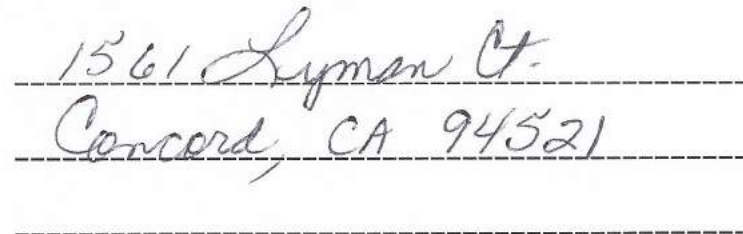 1561 Lyman Ct.
Concord, CA 94521